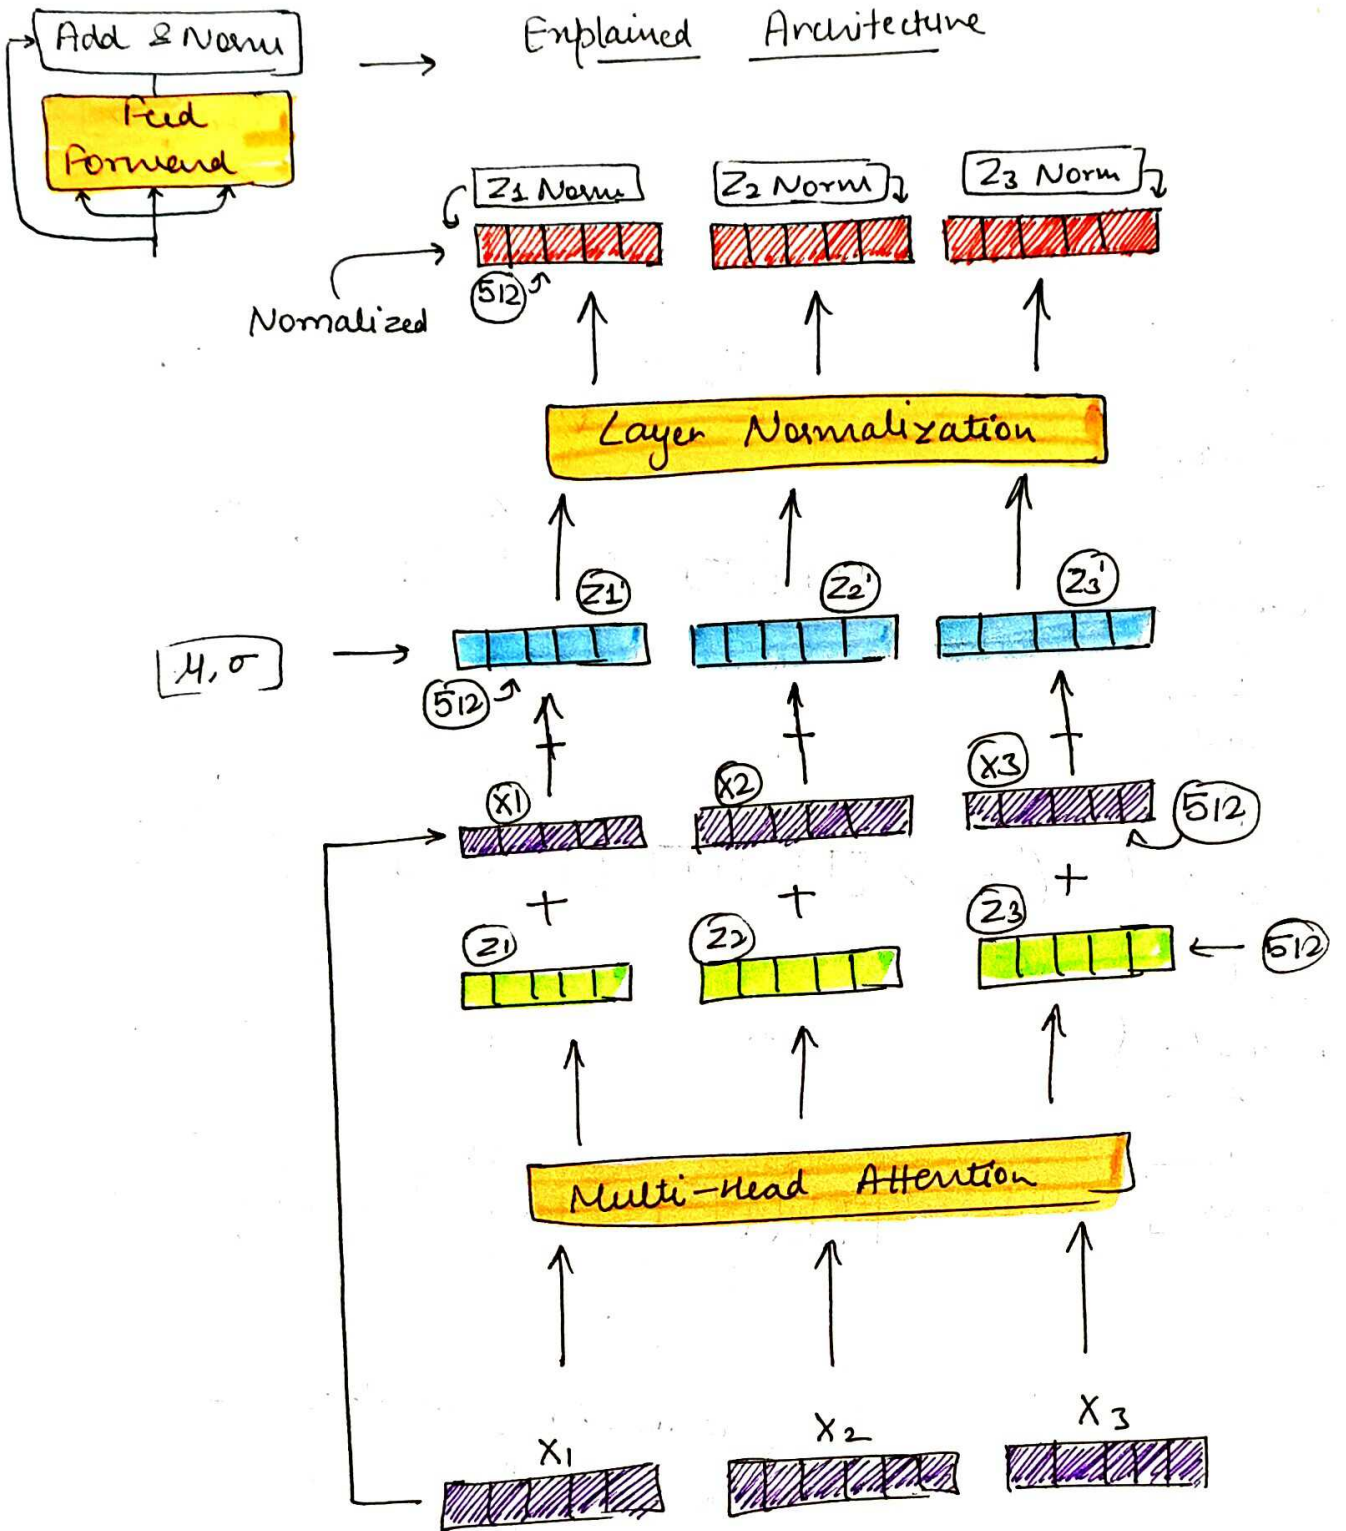 Add & Norm
Feed
Forward
→ Explained Architecture
Z1 Norm
Z2 Norm
Z3 Norm
512
Normalized
Layer Normalization
Z1'
Z2'
Z3'
μ, σ
512
X1
X2
X3
512
+
+
+
Z1
Z2
Z3
512
Multi-Head Attention
X1
X2
X3